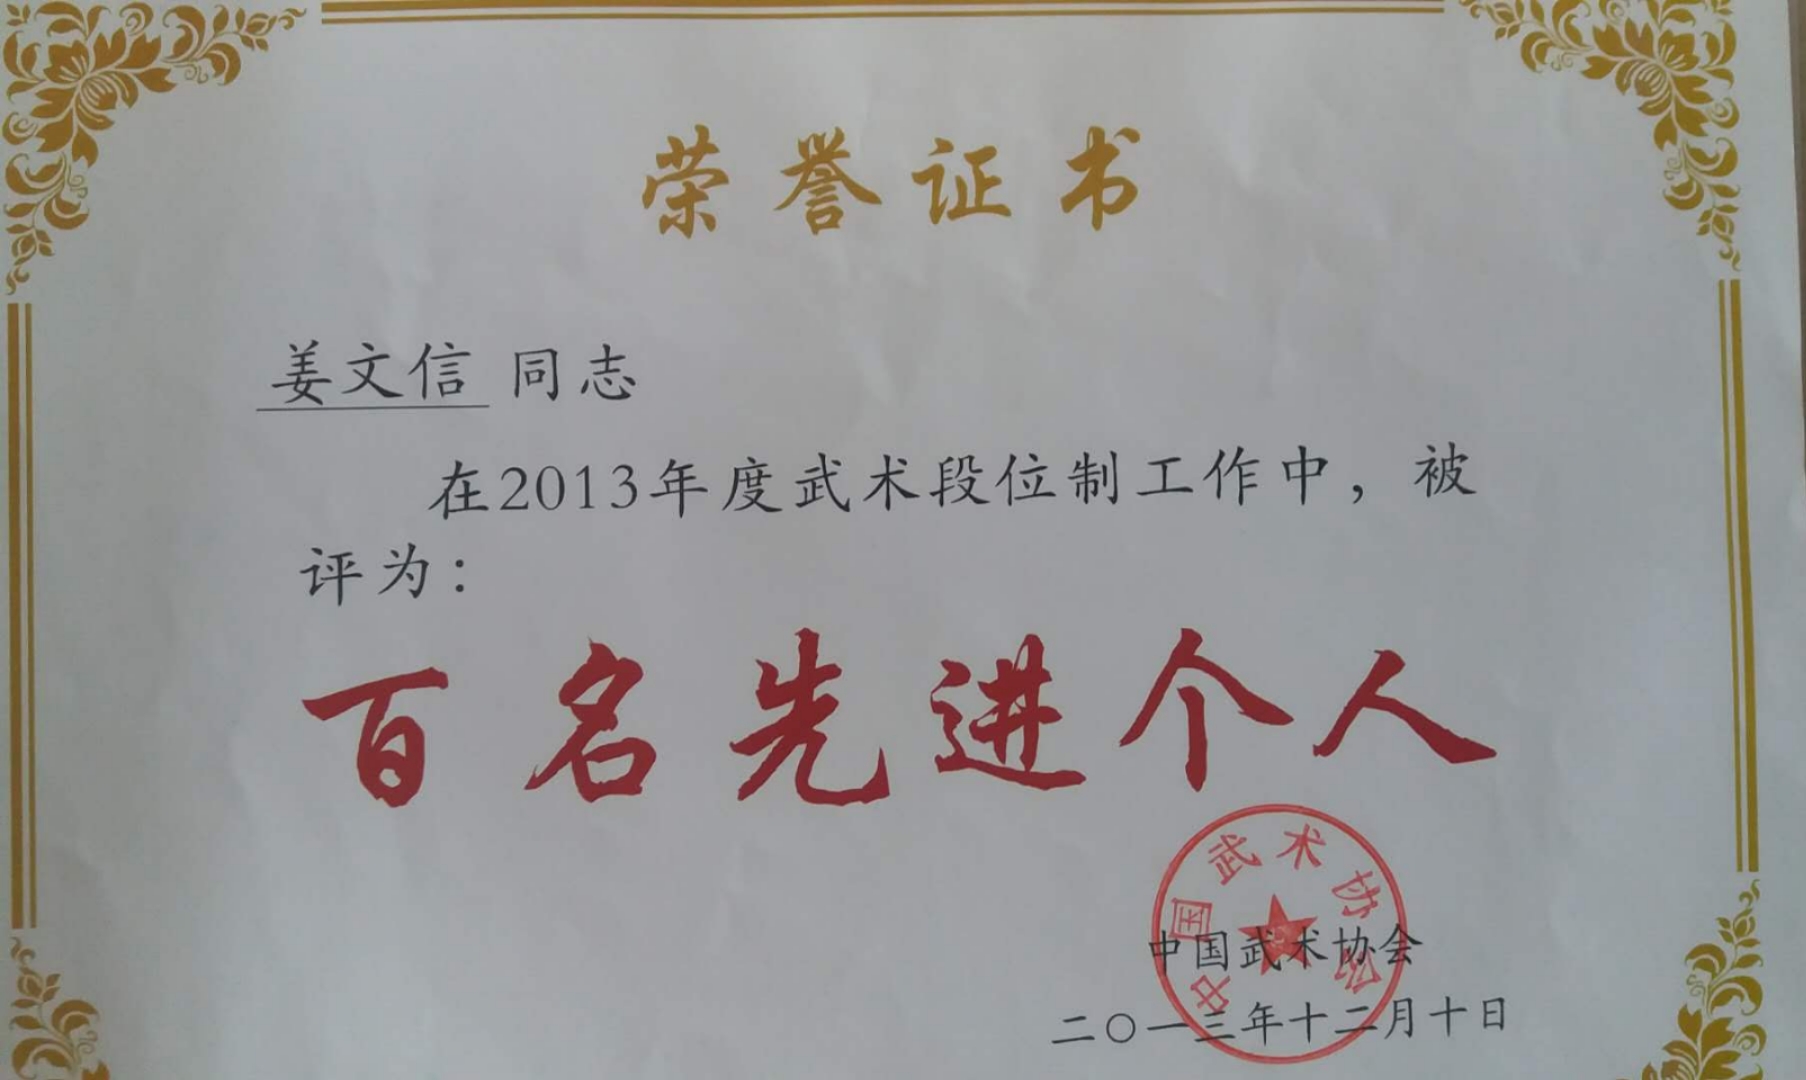 荣誉证书
姜文信 同志
在2013年度武术段位制工作中，被
评为：
百名先进个人
中国武术协会
中国武术协会
二〇一三年十二月十日